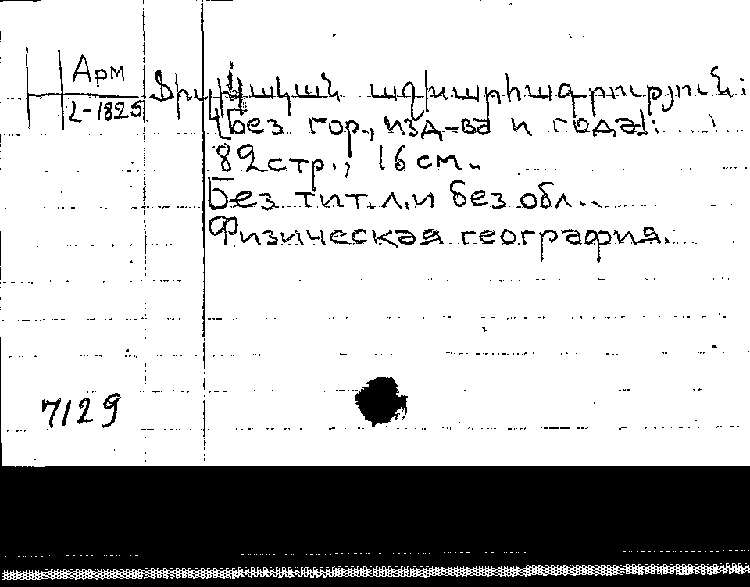 Арм
2-1825
Ֆիզիկական աշխարհագրություն:
[без гор., изд-ва и года].
82стр., 16 см.
Без тит. л. и без обл..
Физическая география.
7129